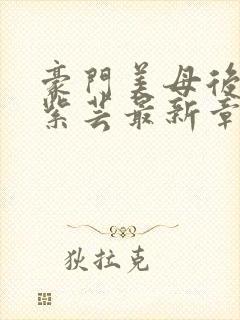 豪門美母後
紫芸最新章
狄拉克